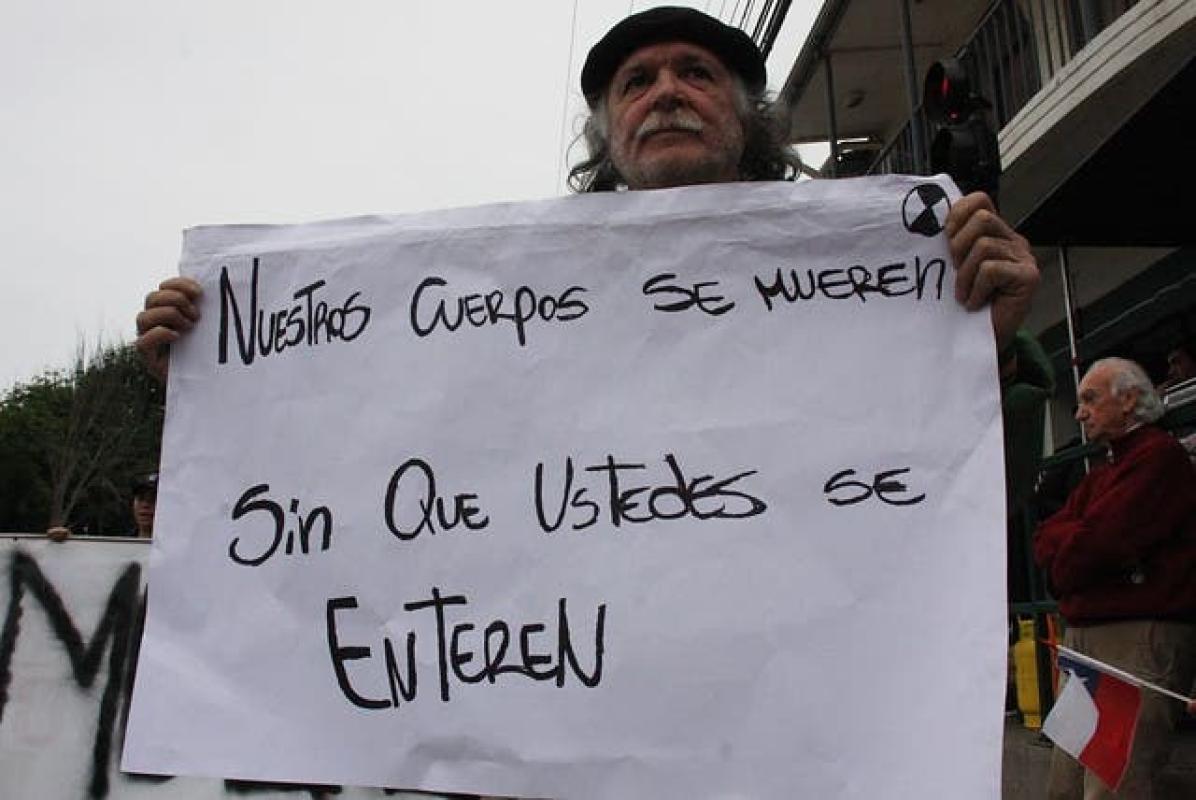 Nuestros Cuerpos se mueren
Sin Que Ustedes se
Enteren
M